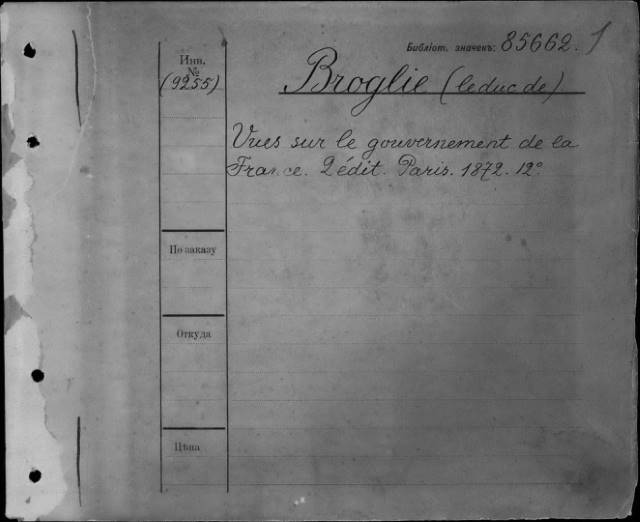 Библіот. значенъ: 85662. 1
Инв.
№
(9255)
Broglie (le duc de)
Vues sur le gouvernement de la
France. 2 édit. Paris. 1872. 12°
По заказу
Откуда
Цѣна